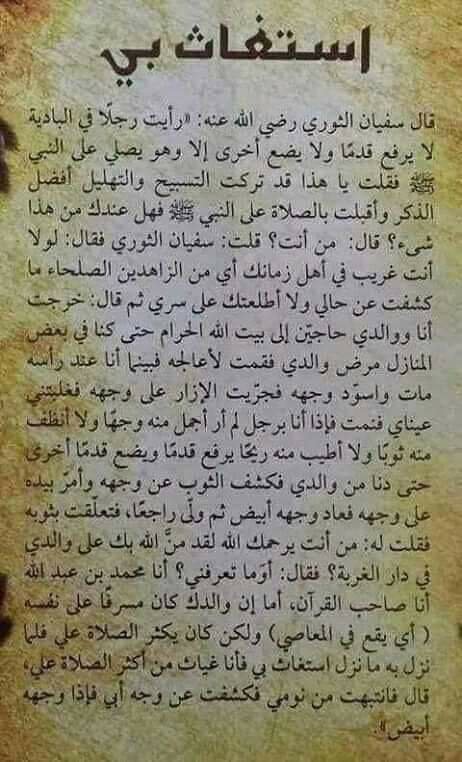 استغاث بي
قال سفيان الثوري رضي الله عنه: «رأيت رجلًا في البادية
لا يرفع قدمًا ولا يضع أخرى إلا وهو يصلي على النبي
ﷺ فقلت يا هذا قد تركت التسبيح والتهليل أفضل
الذكر وأقبلت بالصلاة على النبي ﷺ فهل عندك من هذا
شىء؟ قال: من أنت؟ قلت: سفيان الثوري فقال: لولا
أنت غريب في أهل زمانك أي من الزاهدين الصلحاء ما
كشفت عن حالي ولا أطلعتك على سري ثم قال: خرجت
أنا ووالدي حاجين إلى بيت الله الحرام حتى كنا في بعض
المنازل مرض والدي فقمت لأعالجه فبينما أنا عند رأسه
مات واسودّ وجهه فجرّيت الإزار على وجهه فغلبتني
عيناي فنمت فإذا أنا برجل لم أر أجمل منه وجهًا ولا أنظف
منه ثوبًا ولا أطيب منه ريحًا يرفع قدمًا ويضع قدمًا أخرى
حتى دنا من والدي فكشف الثوب عن وجهه وأمرّ بيده
على وجهه فعاد وجهه أبيض ثم ولّى راجعًا، فتعلّقت بثوبه
فقلت له: من أنت يرحمك الله لقد منَّ الله بك على والدي
في دار الغربة؟ فقال: أوَما تعرفني؟ أنا محمد بن عبد الله
أنا صاحب القرآن، أما إن والدك كان مسرفًا على نفسه
( أي يقع في المعاصي) ولكن كان يكثر الصلاة علي فلما
نزل به ما نزل استغاث بي فأنا غياث من أكثر الصلاة علي،
قال فانتبهت من نومي فكشفت عن وجه أبي فإذا وجهه
أبيض».